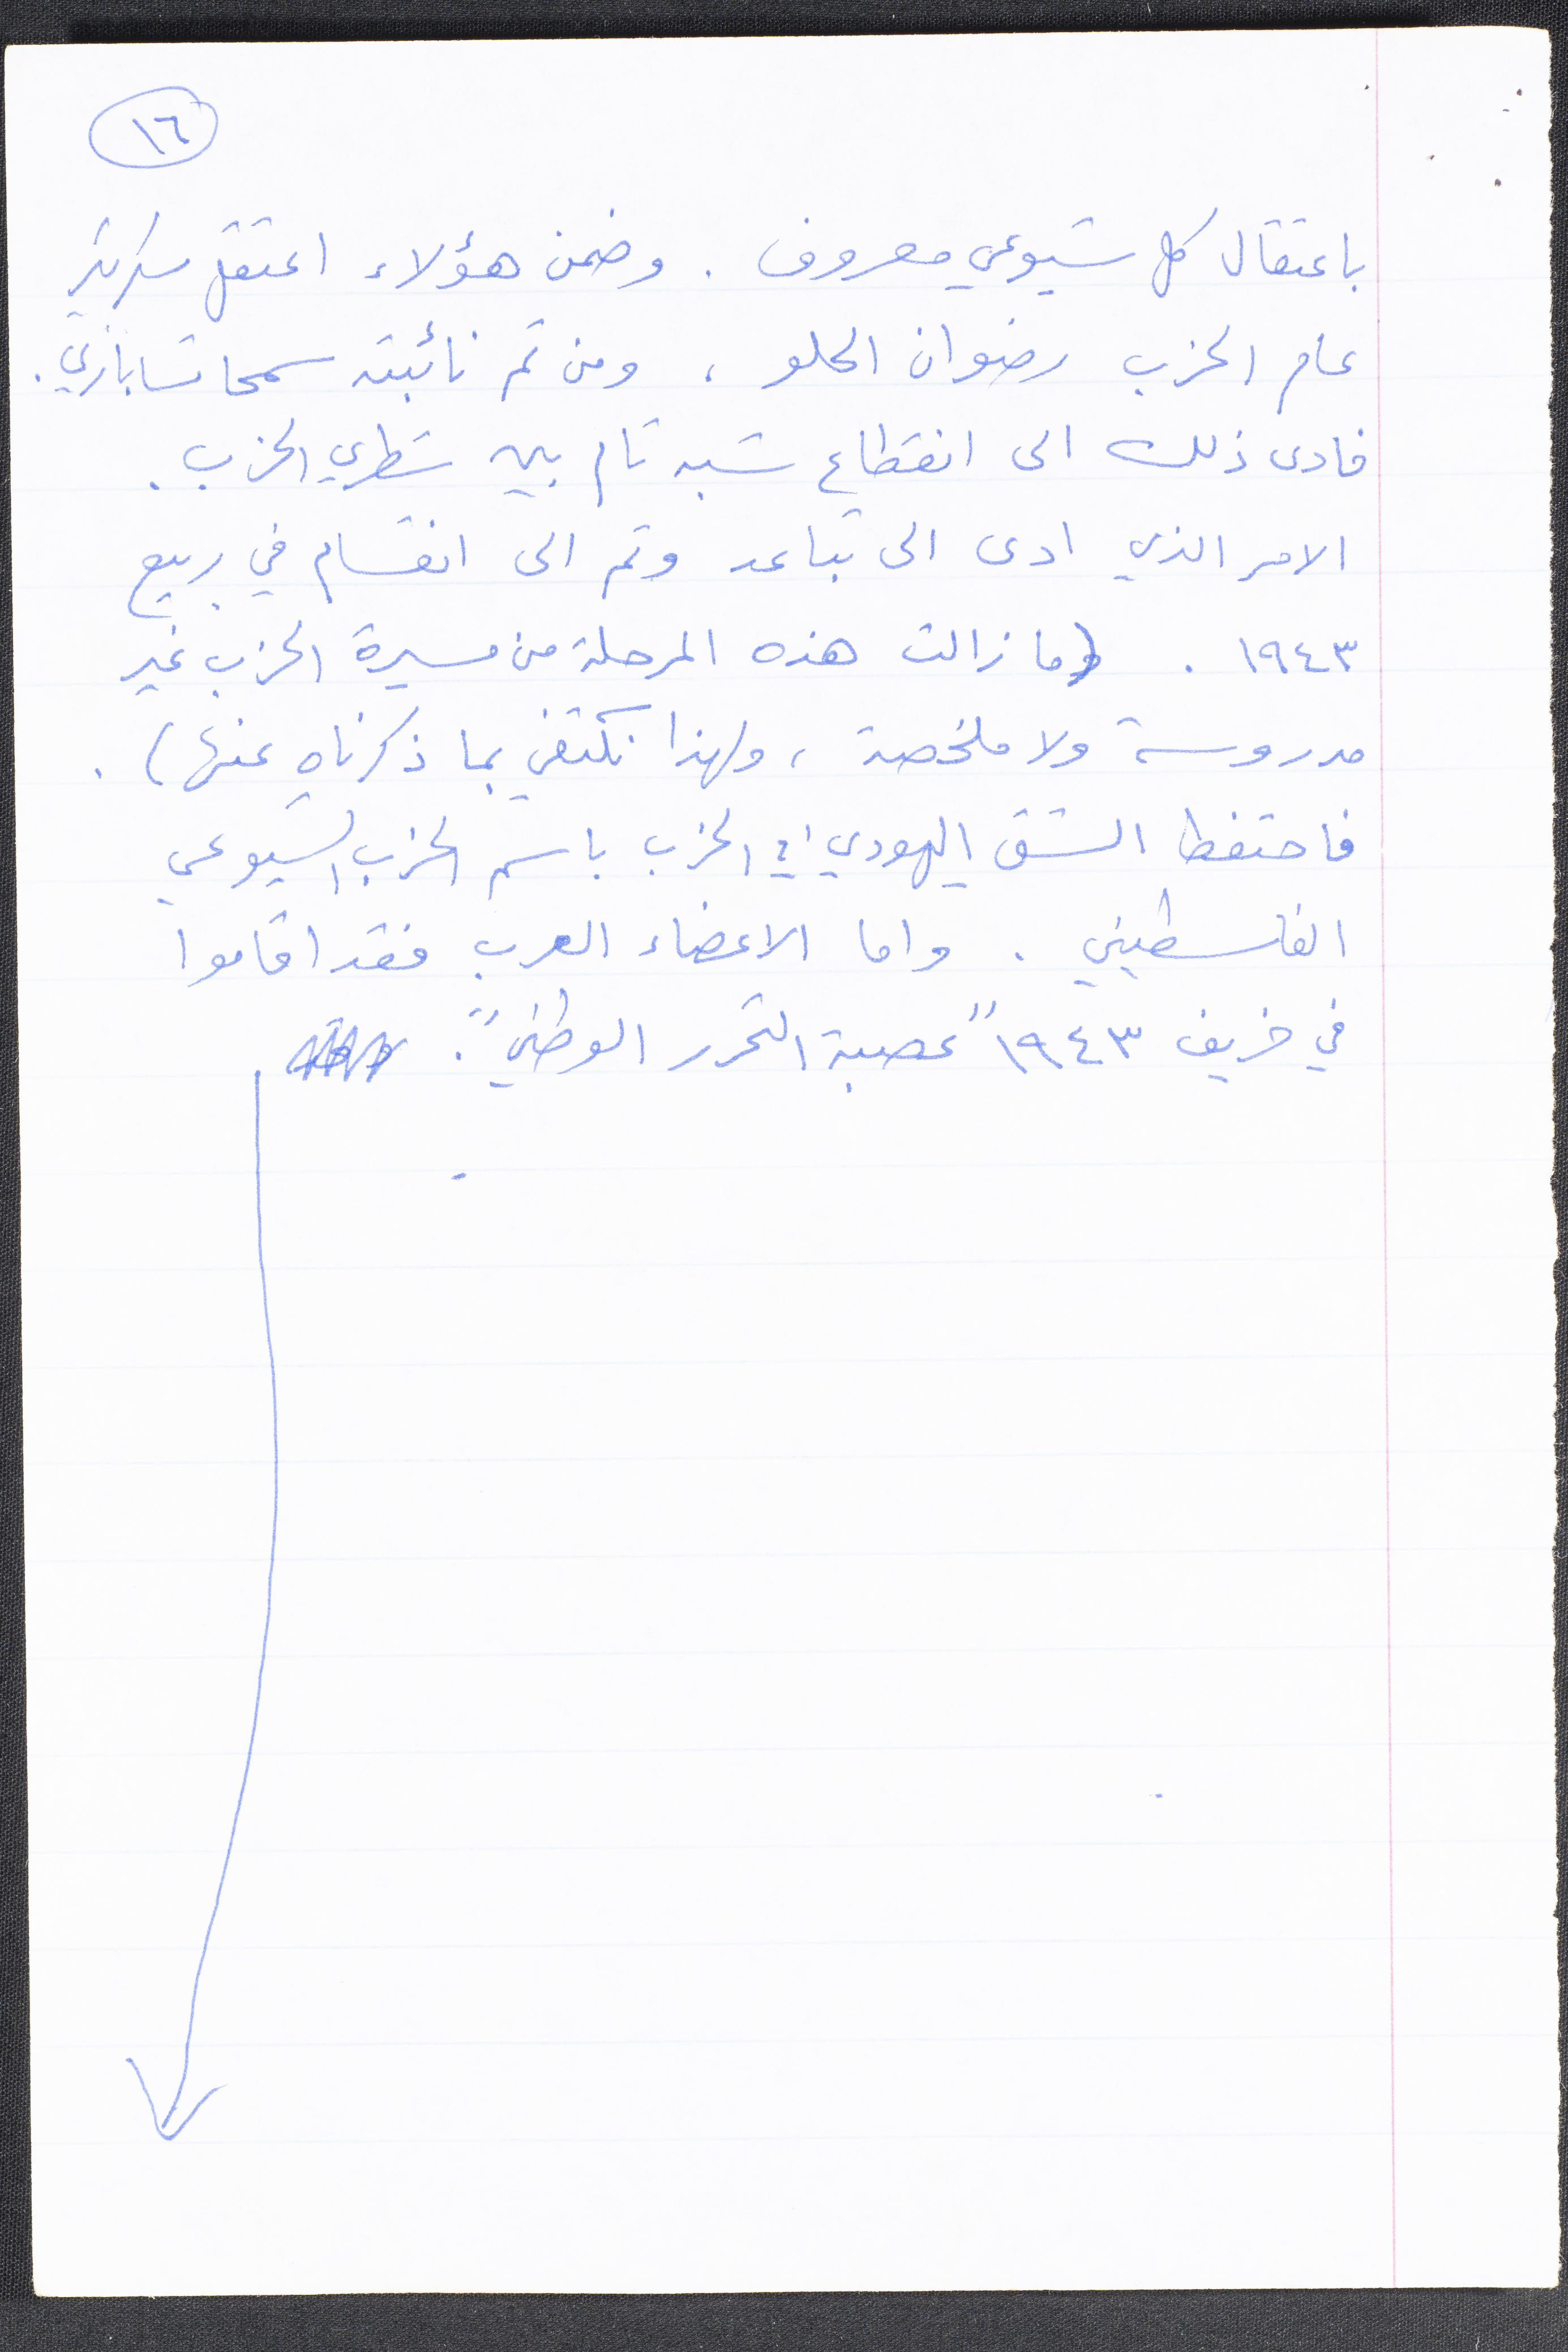 ١٦
باعتقال كل شيوعي معروف . وضمن هؤلاء اعتقل سكرتير
عام الحزب رضوان الحلو ، ومن تم نائبته سمحا تساباري .
فادى ذلك الى انقطاع شبه تام بين شطري الحزب .
الامر الذي ادى الى تباعد وتم الى انقسام في ربيع
١٩٤٣ . (ما زالت هذه المرحلة من مسيرة الحزب غير
مدروسة ولا ملخصة ، ولهذا نكتفي بما ذكرناه عنها) .
فاحتفظ الشق اليهودي في الحزب باسم الحزب الشيوعي
الفلسطيني . واما الاعضاء العرب فقد اقاموا
في خريف ١٩٤٣ "عصبة التحرر الوطني" .